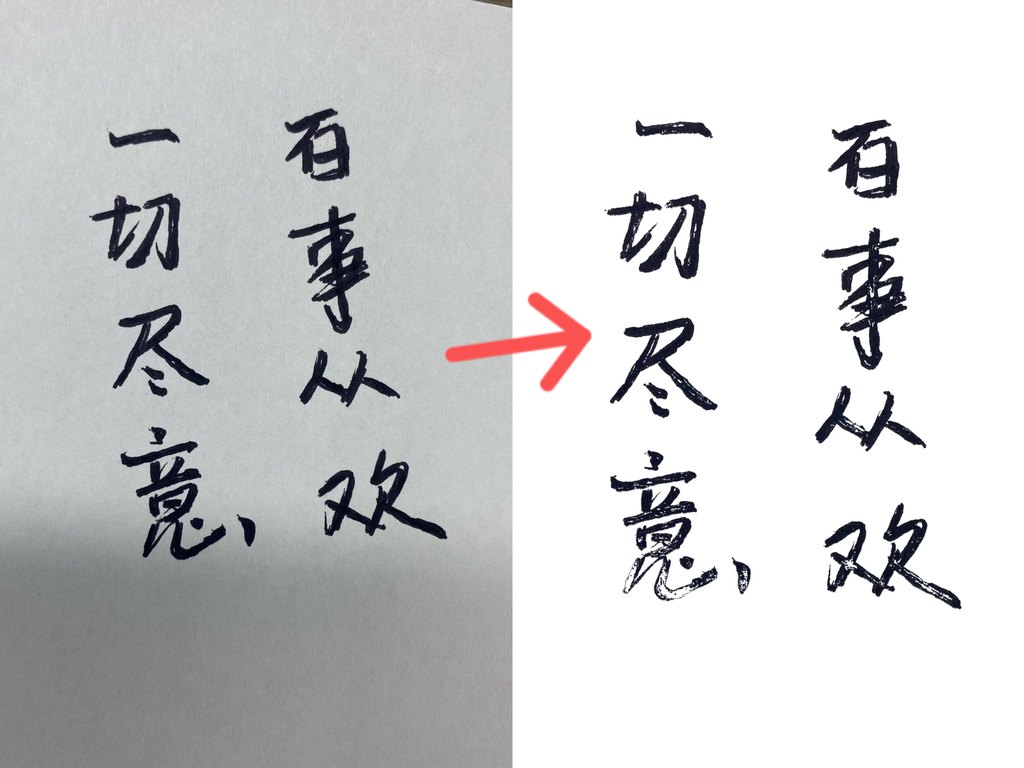 一切尽意，
百事从欢
一切尽意，
百事从欢